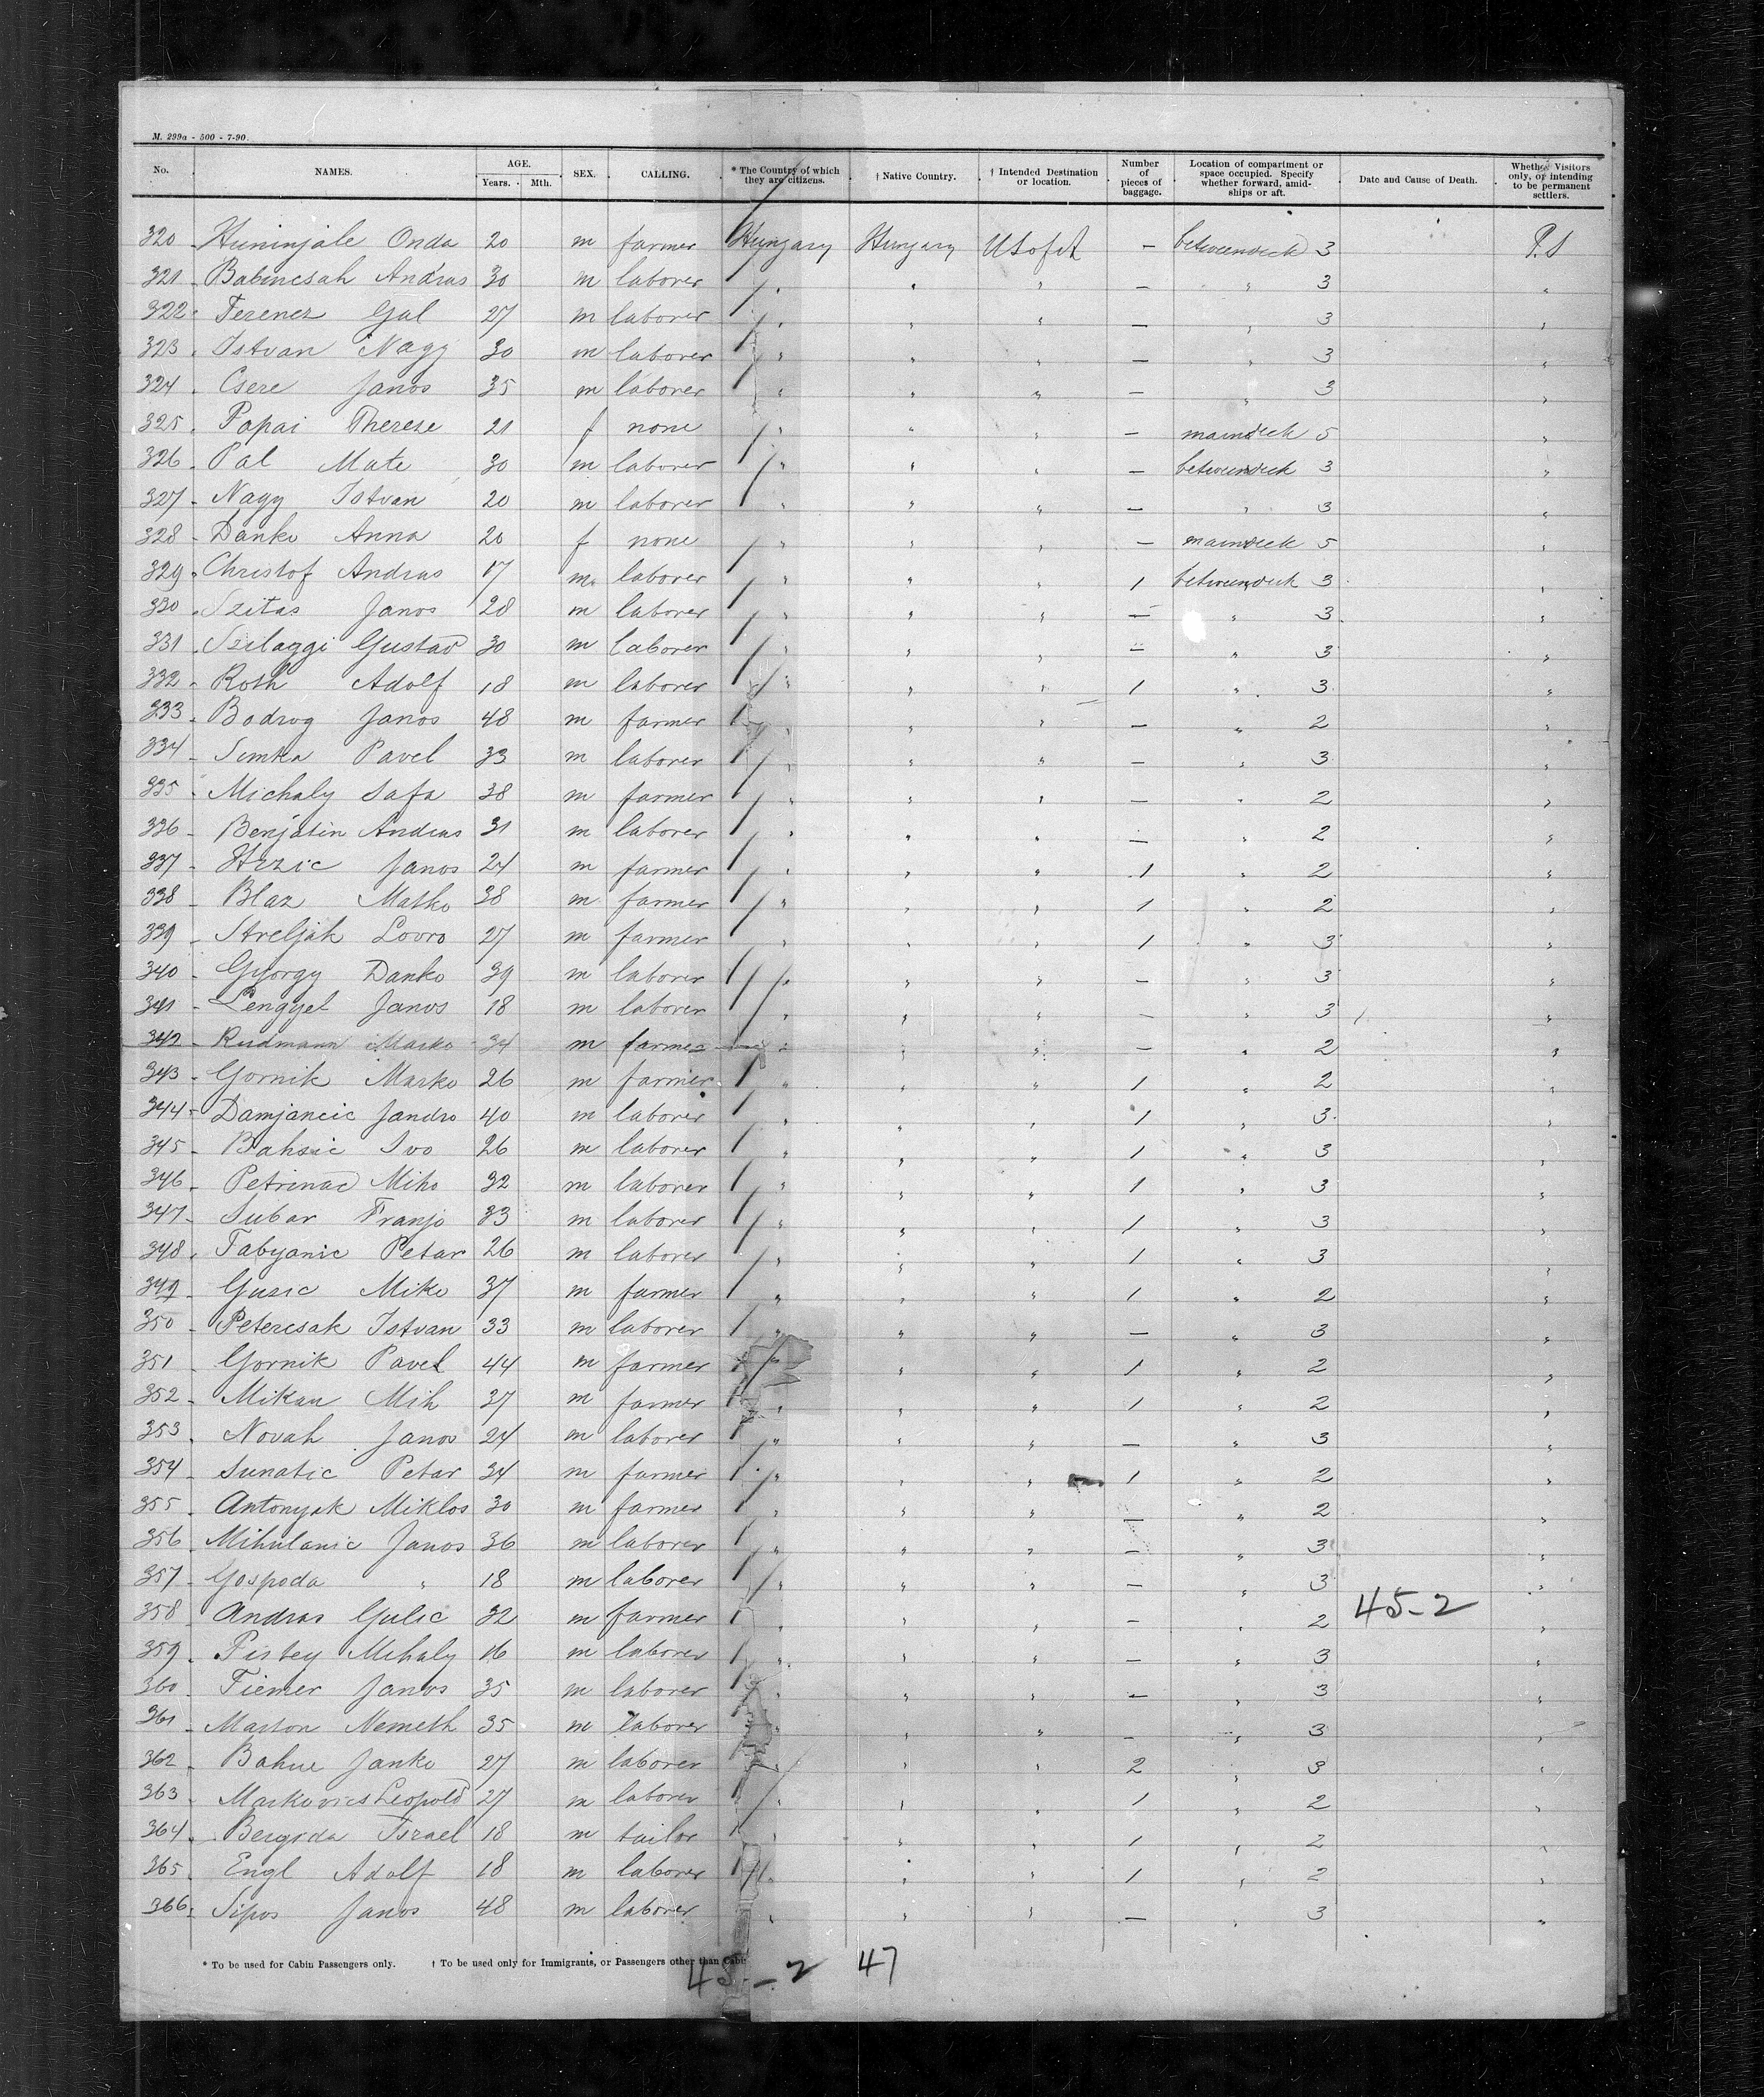 M. 299a - 500 - 7-90.
No. NAMES. AGE. Years. Mth. SEX. CALLING. * The Country of which they are citizens. † Native Country. † Intended Destination or location. Number of pieces of baggage. Location of compartment or space occupied. Specify whether forward, amid-ships or aft. Date and Cause of Death. Whether Visitors only, or intending to be permanent settlers.
320 Huninjale Onda 20 m farmer Hungary Hungary U S of A — betweendeck 3 P.S
321 Babincsah Andras 30 m laborer " " " — " 3 "
322 Ferencz Gal 27 m laborer " " " — " 3 "
323 Istvan Nagy 30 m laborer " " " — " 3 "
324 Csere Janos 35 m laborer " " " — " 3 "
325 Papai Therese 21 f none " " " — maindeck 5 "
326 Pal Mate 30 m laborer " " " — betweendeck 3 "
327 Nagy Istvan 20 m laborer " " " — " 3 "
328 Danko Anna 20 f none " " " — maindeck 5 "
329 Christof Andras 17 m laborer " " " 1 betweendeck 3 "
330 Szitas Janos 28 m laborer " " " — " 3 "
331 Szilaggi Gustav 30 m laborer " " " — " 3 "
332 Roth Adolf 18 m laborer " " " 1 " 3 "
333 Bodrog Janos 48 m farmer " " " — " 2 "
334 Simka Pavel 33 m laborer " " " — " 3 "
335 Michaly Safa 38 m farmer " " " — " 2 "
336 Benjatin Andras 31 m laborer " " " — " 2 "
337 Hrzic Janos 24 m farmer " " " 1 " 2 "
338 Blaz Matko 38 m farmer " " " 1 " 2 "
339 Streljak Lovro 27 m farmer " " " 1 " 3 "
340 Gyorgy Danko 39 m laborer " " " — " 3 "
341 Lengyel Janos 18 m laborer " " " — " 3 "
342 Rudmann Marko 34 m farmer " " " — " 2 "
343 Gornik Marko 26 m farmer " " " 1 " 2 "
344 Damjancic Jandro 40 m laborer " " " 1 " 3 "
345 Bahsic Ivo 26 m laborer " " " 1 " 3 "
346 Petrinac Miho 32 m laborer " " " 1 " 3 "
347 Subar Franjo 33 m laborer " " " 1 " 3 "
348 Tabyanic Petar 26 m laborer " " " 1 " 3 "
349 Gusic Miko 37 m farmer " " " 1 " 2 "
350 Petercsak Istvan 33 m laborer " " " — " 3 "
351 Gornik Pavel 44 m farmer " " " 1 " 2 "
352 Mikan Mih 37 m farmer " " " 1 " 2 "
353 Novah Janos 24 m laborer " " " — " 3 "
354 Sunatic Petar 34 m farmer " " " 1 " 2 "
355 Antonyak Miklos 30 m farmer " " " — " 2 "
356 Mihulanic Janos 36 m laborer " " " — " 3 "
357 Gospoda " 18 m laborer " " " — " 3 "
358 Andras Gulic 32 m farmer " " " — " 2 45-2 "
359 Pistey Mihaly 16 m laborer " " " — " 3 "
360 Fiemer Janos 35 m laborer " " " — " 3 "
361 Marton Nemeth 35 m laborer " " " — " 3 "
362 Bahue Janko 27 m laborer " " " 2 " 3 "
363 Markovics Leopold 27 m laborer " " " 1 " 2 "
364 Bergida Israel 18 m tailor " " " 1 " 2 "
365 Engl Adolf 18 m laborer " " " 1 " 2 "
366 Sipos Janos 48 m laborer " " " — " 3 "
* To be used for Cabin Passengers only. † To be used only for Immigrants, or Passengers other than Cabin
45-2 47